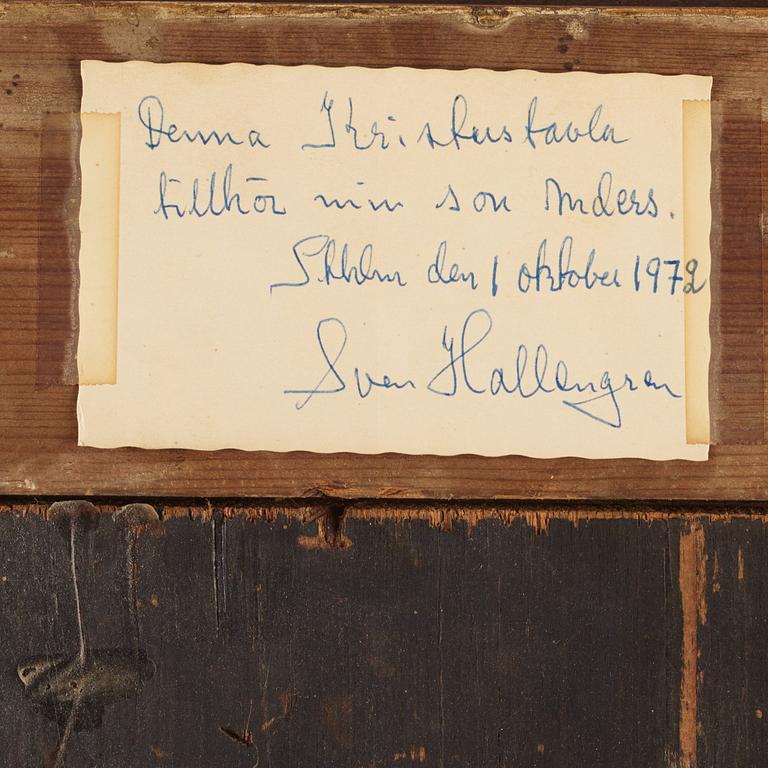 Denna Kristustavla
tillhör min son Anders.
Sthlm den 1 oktober 1972
Sven Hallengren